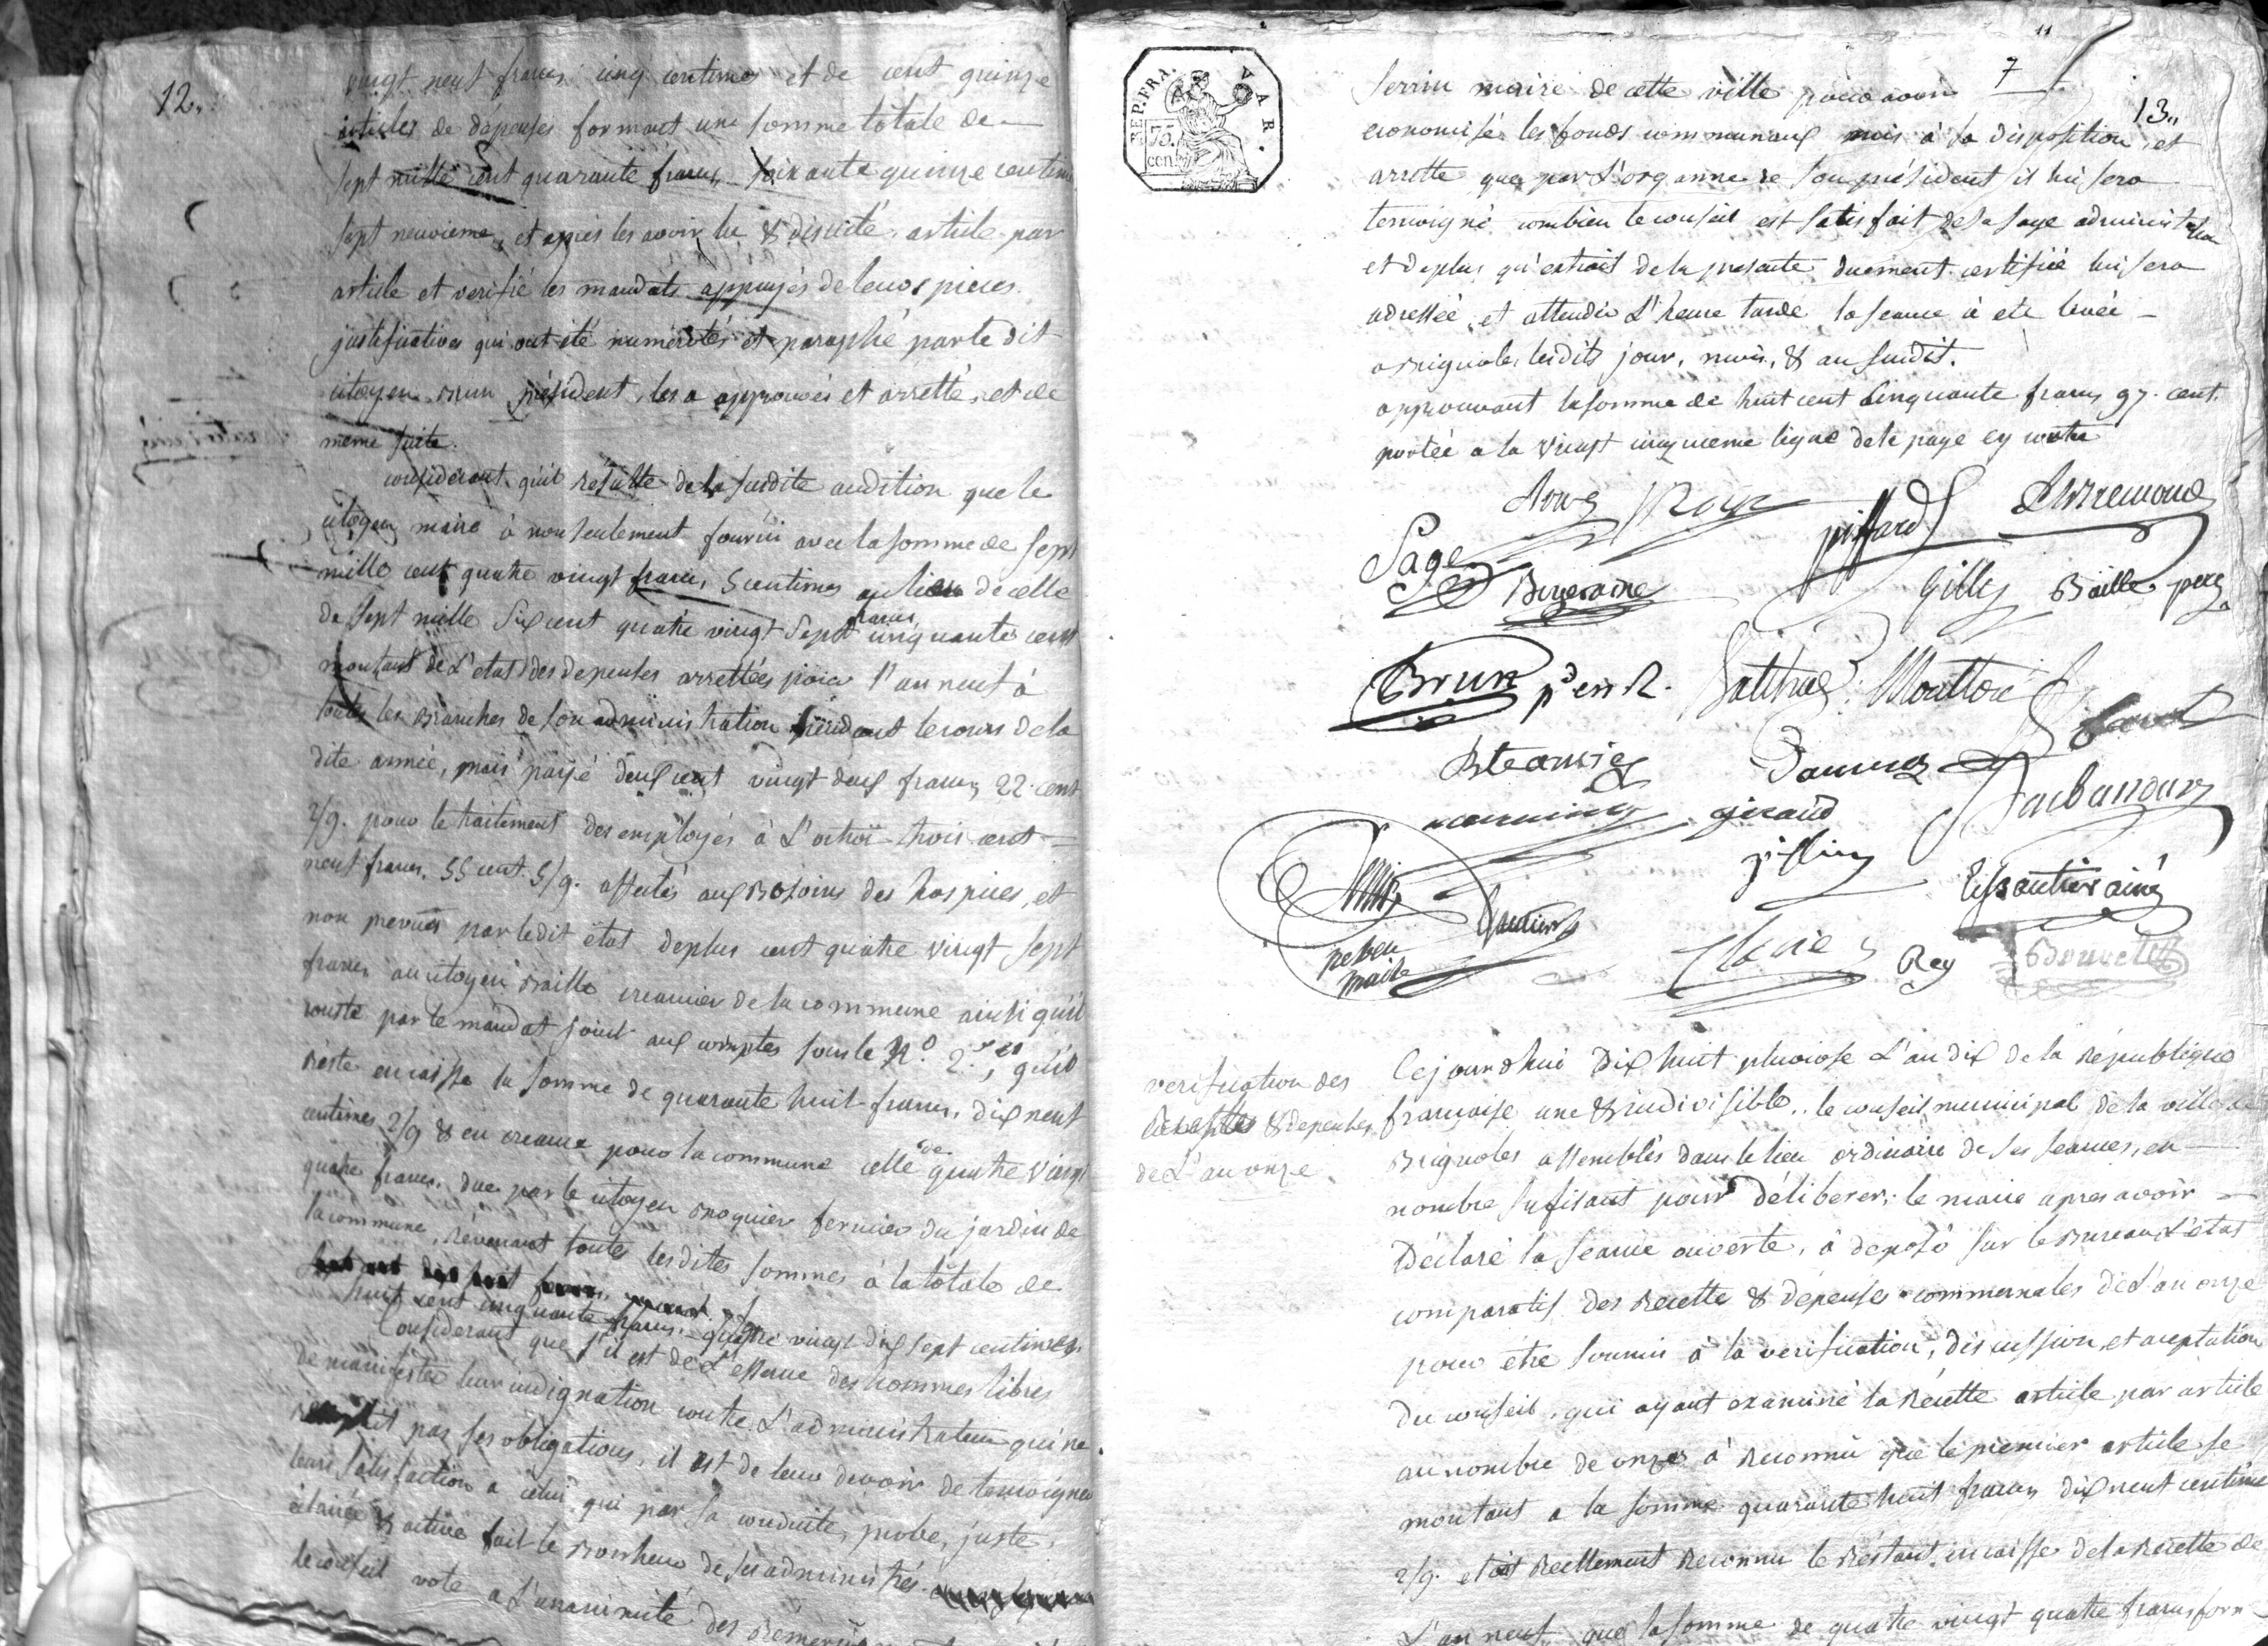 12.
vingt neuf francs cinq centimes et de cent quinze
articles de depenses formant une somme totale de
sept mille cent quarante francs soixante quinze centimes
sept neuvieme, et apres les avoir lu & discuté, article par
article et verifié les mandats appuyés de leurs pieces
justificatives qui ont été numerotés et paraphé par le dit
citoyen Brun président, les a approuvés et arretté, et de
même suite.
considerant qu'il résulte de la susdite audition que le
citoyen maire à non seulement fourni avec la somme de sept
mille cent quatre vingt francs, 5 centimes au lieu de celle
de sept mille six cent quatre vingt sept francs cinquante cent
montant de l'etat des depenses arrettées pour l'an neuf à
toutes les Branches de son administration pendant le cours de la
dite année, mais payé deux cent vingt deux francs 22 cent
2/9. pour le traitement des employés à l'octroi trois cent
neuf francs. 55 cent. 5/9. affectés aux Besoins des hospices, et
non prevues par le dit état deplus cent quatre vingt sept
francs au citoyen Baille creancier de la commune ainsi qu'il
conste par le mandat joint aux comptes sous le N.º 2., qu'il
reste en caisse la somme de quarante huit francs, dix neuf
centimes 2/9 & en creance pour la commune celle de quatre vingt
quatre francs, due par le citoyen Broquier fermier du jardin de
la commune, révenant toutes les dittes sommes à la totale de
huit cent cinquante francs, quatre vingt dix sept centimes.
Considerant que s'il est de l'essence des hommes libres
de manifester leur indignation contre l'administrateur qui ne
remplit pas ses obligations, il est de leur devoir de temoigner
leur satisfaction a celui qui par sa conduite, probe, juste,
éclairée & active fait le Bonheur de ses administrés.
le conseil vote a l'unanimité des
7
13.
Serrin maire de cette ville pour avoir
economisé les fonds communaux mis à sa disposition, et
arrette que par l'organne de son président il lui sera
temoigné combien le conseil est satisfait de sa sage administration
et deplus qu'extrait de la presente duement certifiée lui sera
adressée, et attendu l'heure tarde la seance à eté levée
a Brignoles lesdits jour, mois, & an susdit.
approuvant la somme de huit cent Cinquante francs 97. cent.
portée a la vingt cinquieme ligne de la page cy contre
REP. FRA. VAR.
75. cent.
Roux
piffard
Sage
Gilly Baille pere
Brun p.d en R. Moutton
giraud
Barbaroux
Gautier ainé
maire
Rey
verification des
Recettes & depenses
de l'an onze
Cejourdhui Dix huit pluviose l'an dix de la République
française une & indivisible, le conseil municipal de la ville de
Brignoles assemblés dans le lieu ordinaire de ses seances, en
nombre sufisant pour déliberer; le maire apres avoir
Déclaré la seance ouverte, à deposé sur le Bureau l'état
comparatif des Recette & dépenses communales de l'an onze
pour être soumis à la verification, discussion, et aceptation
du conseil, qui ayant examiné la Récette article par article
au nombre de onze à Reconnu que le premier article se
montant a la somme quarante huit francs dix neuf centime
2/9. etoit reellement Reconnu le Restant en caisse de la Recette de
l'an neuf, que la somme de quatre vingt quatre francs form